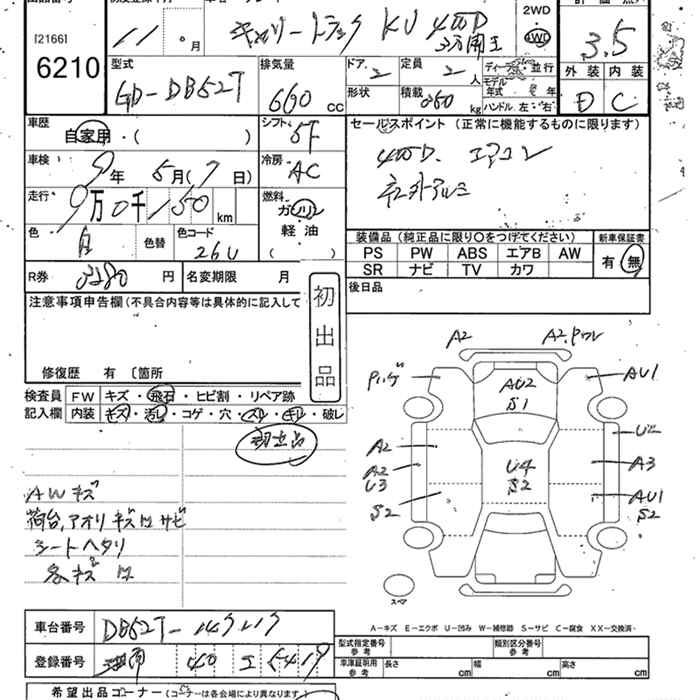 出品番号 初度登録年月 車名・グレード 評価点
[2166]
6210
11 年 月
キャリートラック KU 4WD
3方開
2WD
4WD
3.5
型式 排気量 ドア 定員 ディーラー・並行
モデル
年式 年
外装 内装
GD-DB52T 660 cc 2 2 人
形状 積載 350 kg ハンドル 左・右
D C
車歴 シフト セールスポイント (正常に機能するものに限ります)
自家用・( ) 5F
4WD. エアコン
車検 9年 5月(7日) 冷房 AC
社外アルミ
走行 9万0千150 km 燃料 ガソリン
軽油
( )
色 白 色替 色コード 26U
装備品 (純正品に限り〇をつけてください) 新車保証書
PS PW ABS エアB AW 有・無
SR ナビ TV カワ
R券 円 名変期限 月
後日品
注意事項申告欄(不具合内容等は具体的に記入して
初出品
修復歴 有 〔箇所
検査員 FW キズ・飛石・ヒビ割・リペア跡
記入欄 内装 キズ・汚レ・コゲ・穴・スレ・キレ・破レ
初出品
A2 A2.ワレ
AU2 AU1
S1
U2
A2 A3
A2 U4
U3 S2 AU1
S2 S2
AWキズ
荷台,アオリキズ凹サビ
シートヘタリ
各キズ凹
スペア
A-キズ E-エクボ U-凹み W-補修跡 S-サビ C-腐食 XX-交換済-
車台番号 DB52T-149219
型式指定番号 類別区分番号
参考 参考
登録番号 40 エ 5419
車庫証明用 長さ cm 幅 cm 高さ cm
参考
希望出品コーナー (コーナーは各会場により異なります)